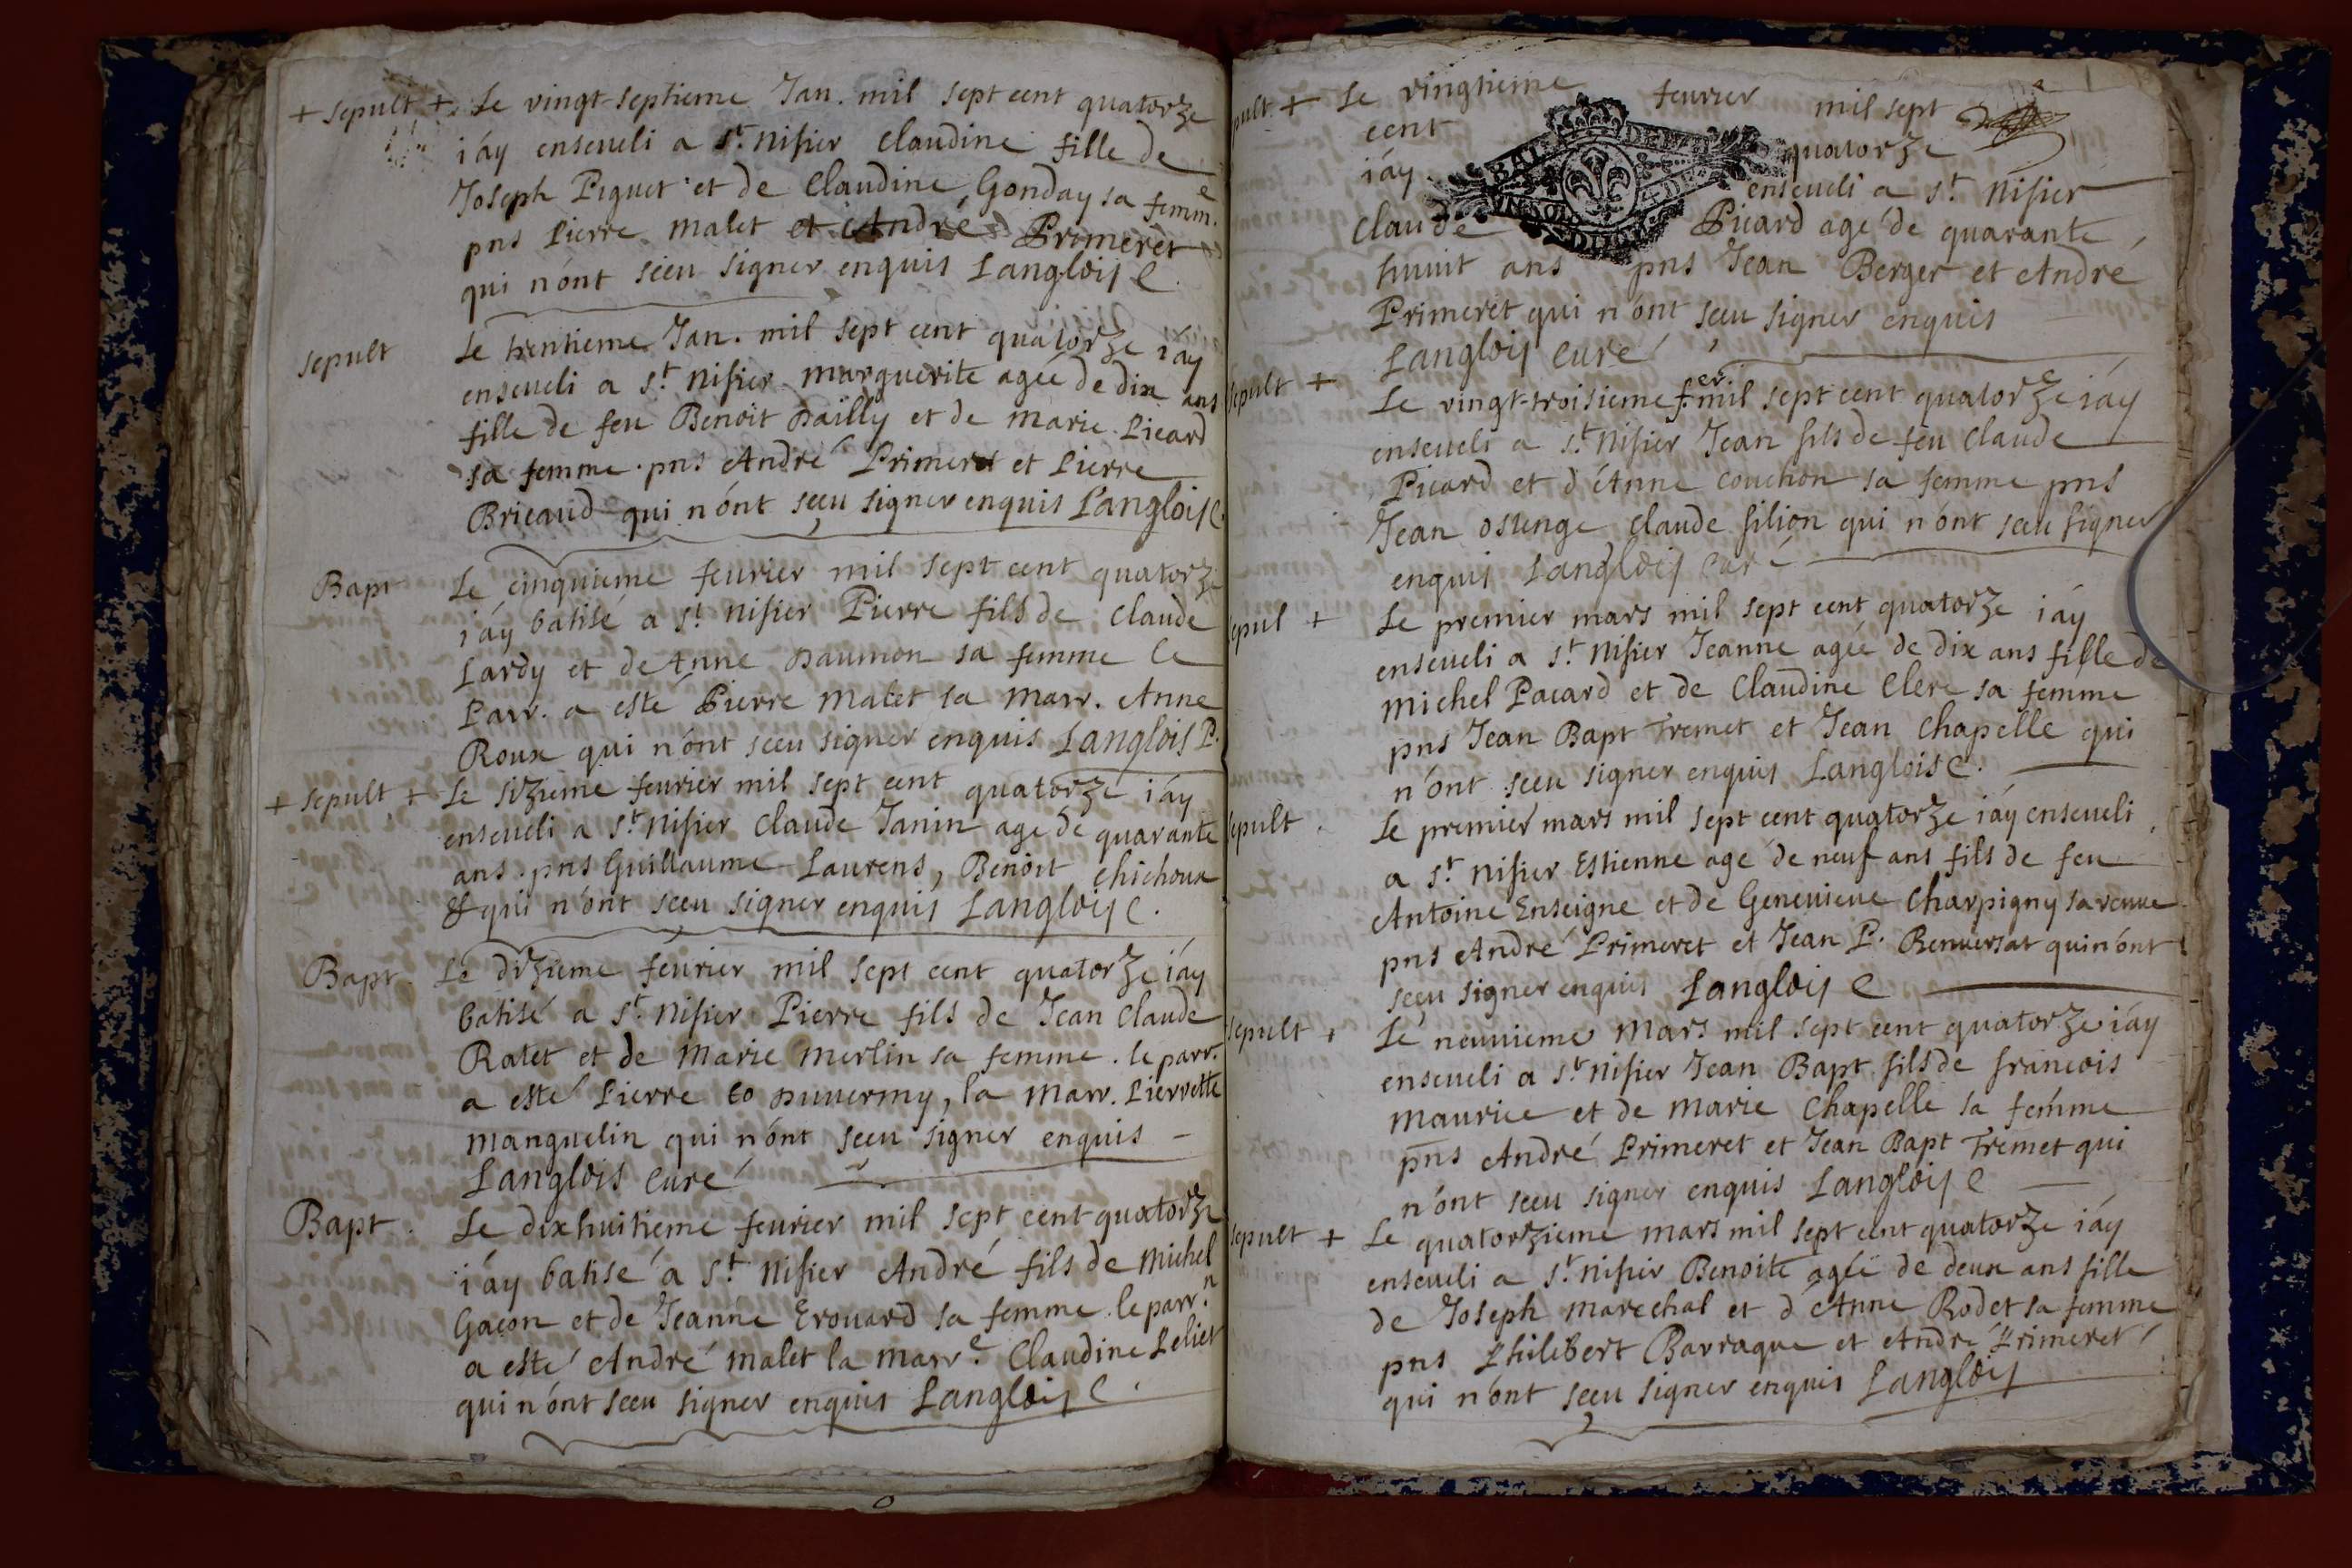 + sepult + Le vingt-septieme Jan. mil sept cent quatorze
i'ay enseueli a St. Nisier Claudine fille de
Joseph Piguet et de Claudine Gonday sa femme.
pns Pierre Malet et André Primeret
qui n'ont sceu signer enquis Langlois C.
sepult Le trentieme Jan. mil sept cent quatorze i'ay
enseueli a St. Nisier Marguerite agée de dix ans
fille de feu Benoit Dailly et de Marie Picard
sa femme. pns André Primeret et Pierre
Bricaud qui n'ont sceu signer enquis Langlois C.
Bapt Le cinquieme feurier mil sept cent quatorze
i'ay batisé a St. Nisier Pierre fils de Claude
Lardy et de Anne Daumon sa femme le
Parr. a esté Pierre Malet la Marr. Anne
Roux qui n'ont sceu signer enquis Langlois P.
+ sepult + Le sizieme feurier mil sept cent quatorze i'ay
enseueli a St. Nisier Claude Janin agé de quarante
ans. pns Guillaume Laurens, Benoit Chichoux
& qui n'ont sceu signer enquis Langlois C.
Bapt. Le dizieme feurier mil sept cent quatorze i'ay
batisé a St. Nisier Pierre fils de Jean Claude
Ratet et de Marie Merlin sa femme. le parr.
a esté Pierre Duuermy, la Marr. Pierrette
Manguelin qui n'ont sceu signer enquis -
Langlois Curé
Bapt. Le dixhuitieme feurier mil sept cent quatorze
i'ay batisé a St. Nisier André fils de Michel
Gacon et de Jeanne Erouard sa femme. le parr.n
a esté André Malet la Marr.e Claudine Peliet
qui n'ont sceu signer enquis Langlois C.
pult + Le vingtieme feurier mil sept
cent quatorze
i'ay enseueli a St. Nisier
Claude Picard agé de quarante
huuit ans pns Jean Berger et André
Primeret qui n'ont sceu signer enquis
Langlois Curé
sepult + Le vingt-troisieme f.er mil sept cent quatorze i'ay
enseueli a St. Nisier Jean fils de feu Claude
Picard et d'Anne Couchon sa femme pns
Jean Oslenge Claude Filion qui n'ont sceu signer
enquis Langlois Curé
epul + Le premier mars mil sept cent quatorze i'ay
enseueli a St. Nisier Jeanne agée de dix ans fille de
Michel Pacard et de Claudine Clerc sa femme
pns Jean Bapt Tremet et Jean Chapelle qui
n'ont sceu signer enquis Langlois C.
epult. Le premier mars mil sept cent quatorze i'ay enseueli
a St. Nisier Estienne agé de neuf ans fils de feu
Antoine Enseigne et de Geneuieue Charpigny sa veuue
pns André Primeret et Jean P. Renuersat qui n'ont
sceu signer enquis Langlois C
sepult + Le neuuieme Mars mil sept cent quatorze i'ay
enseueli a St. Nisier Jean Bapt. fils de francois
Maurice et de Marie Chapelle sa femme
pns André Primeret et Jean Bapt Tremet qui
n'ont sceu signer enquis Langlois C
sepult + Le quatorzieme mars mil sept cent quatorze i'ay
enseueli a St. Nisier Benoite agée de deux ans fille
de Joseph Marechal et d'Anne Rodet sa femme
pns Philibert Barraque et André Primeret
qui n'ont sceu signer enquis Langlois